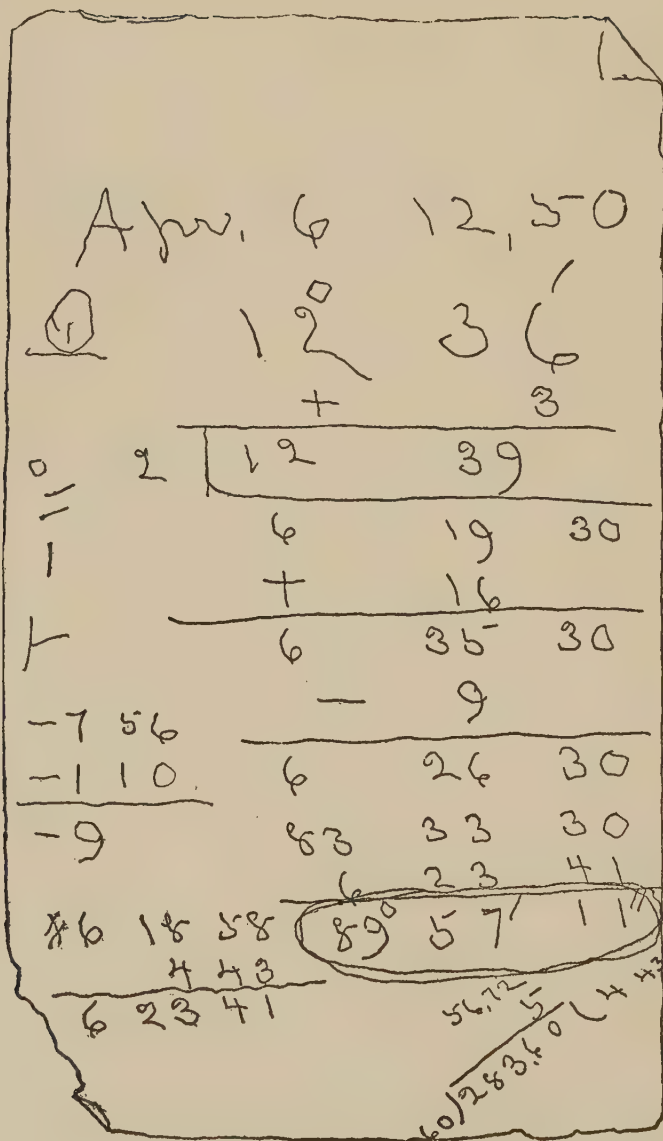 Apr. 6 12,50
12° 36'
+ 3
2 12 39
6 19 30
+ 16
6 35 30
- 9
-7 56
-1 10
-9
6 26 30
83 33 30
6 23 41
89° 57' 11"
6 18 58
4 43
6 23 41
56,72
5
60)283,60(4 43